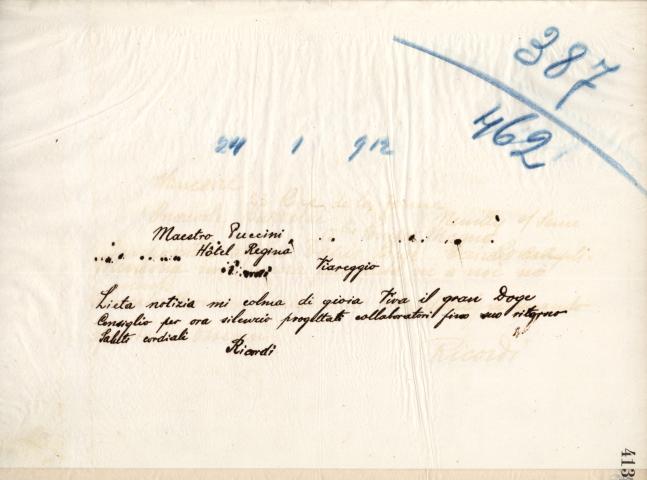 387
462
24 1 912
Maestro Puccini
Hôtel Regina
Viareggio
Lieta notizia mi colma di gioia Viva il gran Doge
Consiglio per ora silenzio progettati collaboratori fino suo ritorno
Saluti cordiali
Ricordi
Ricordi
413